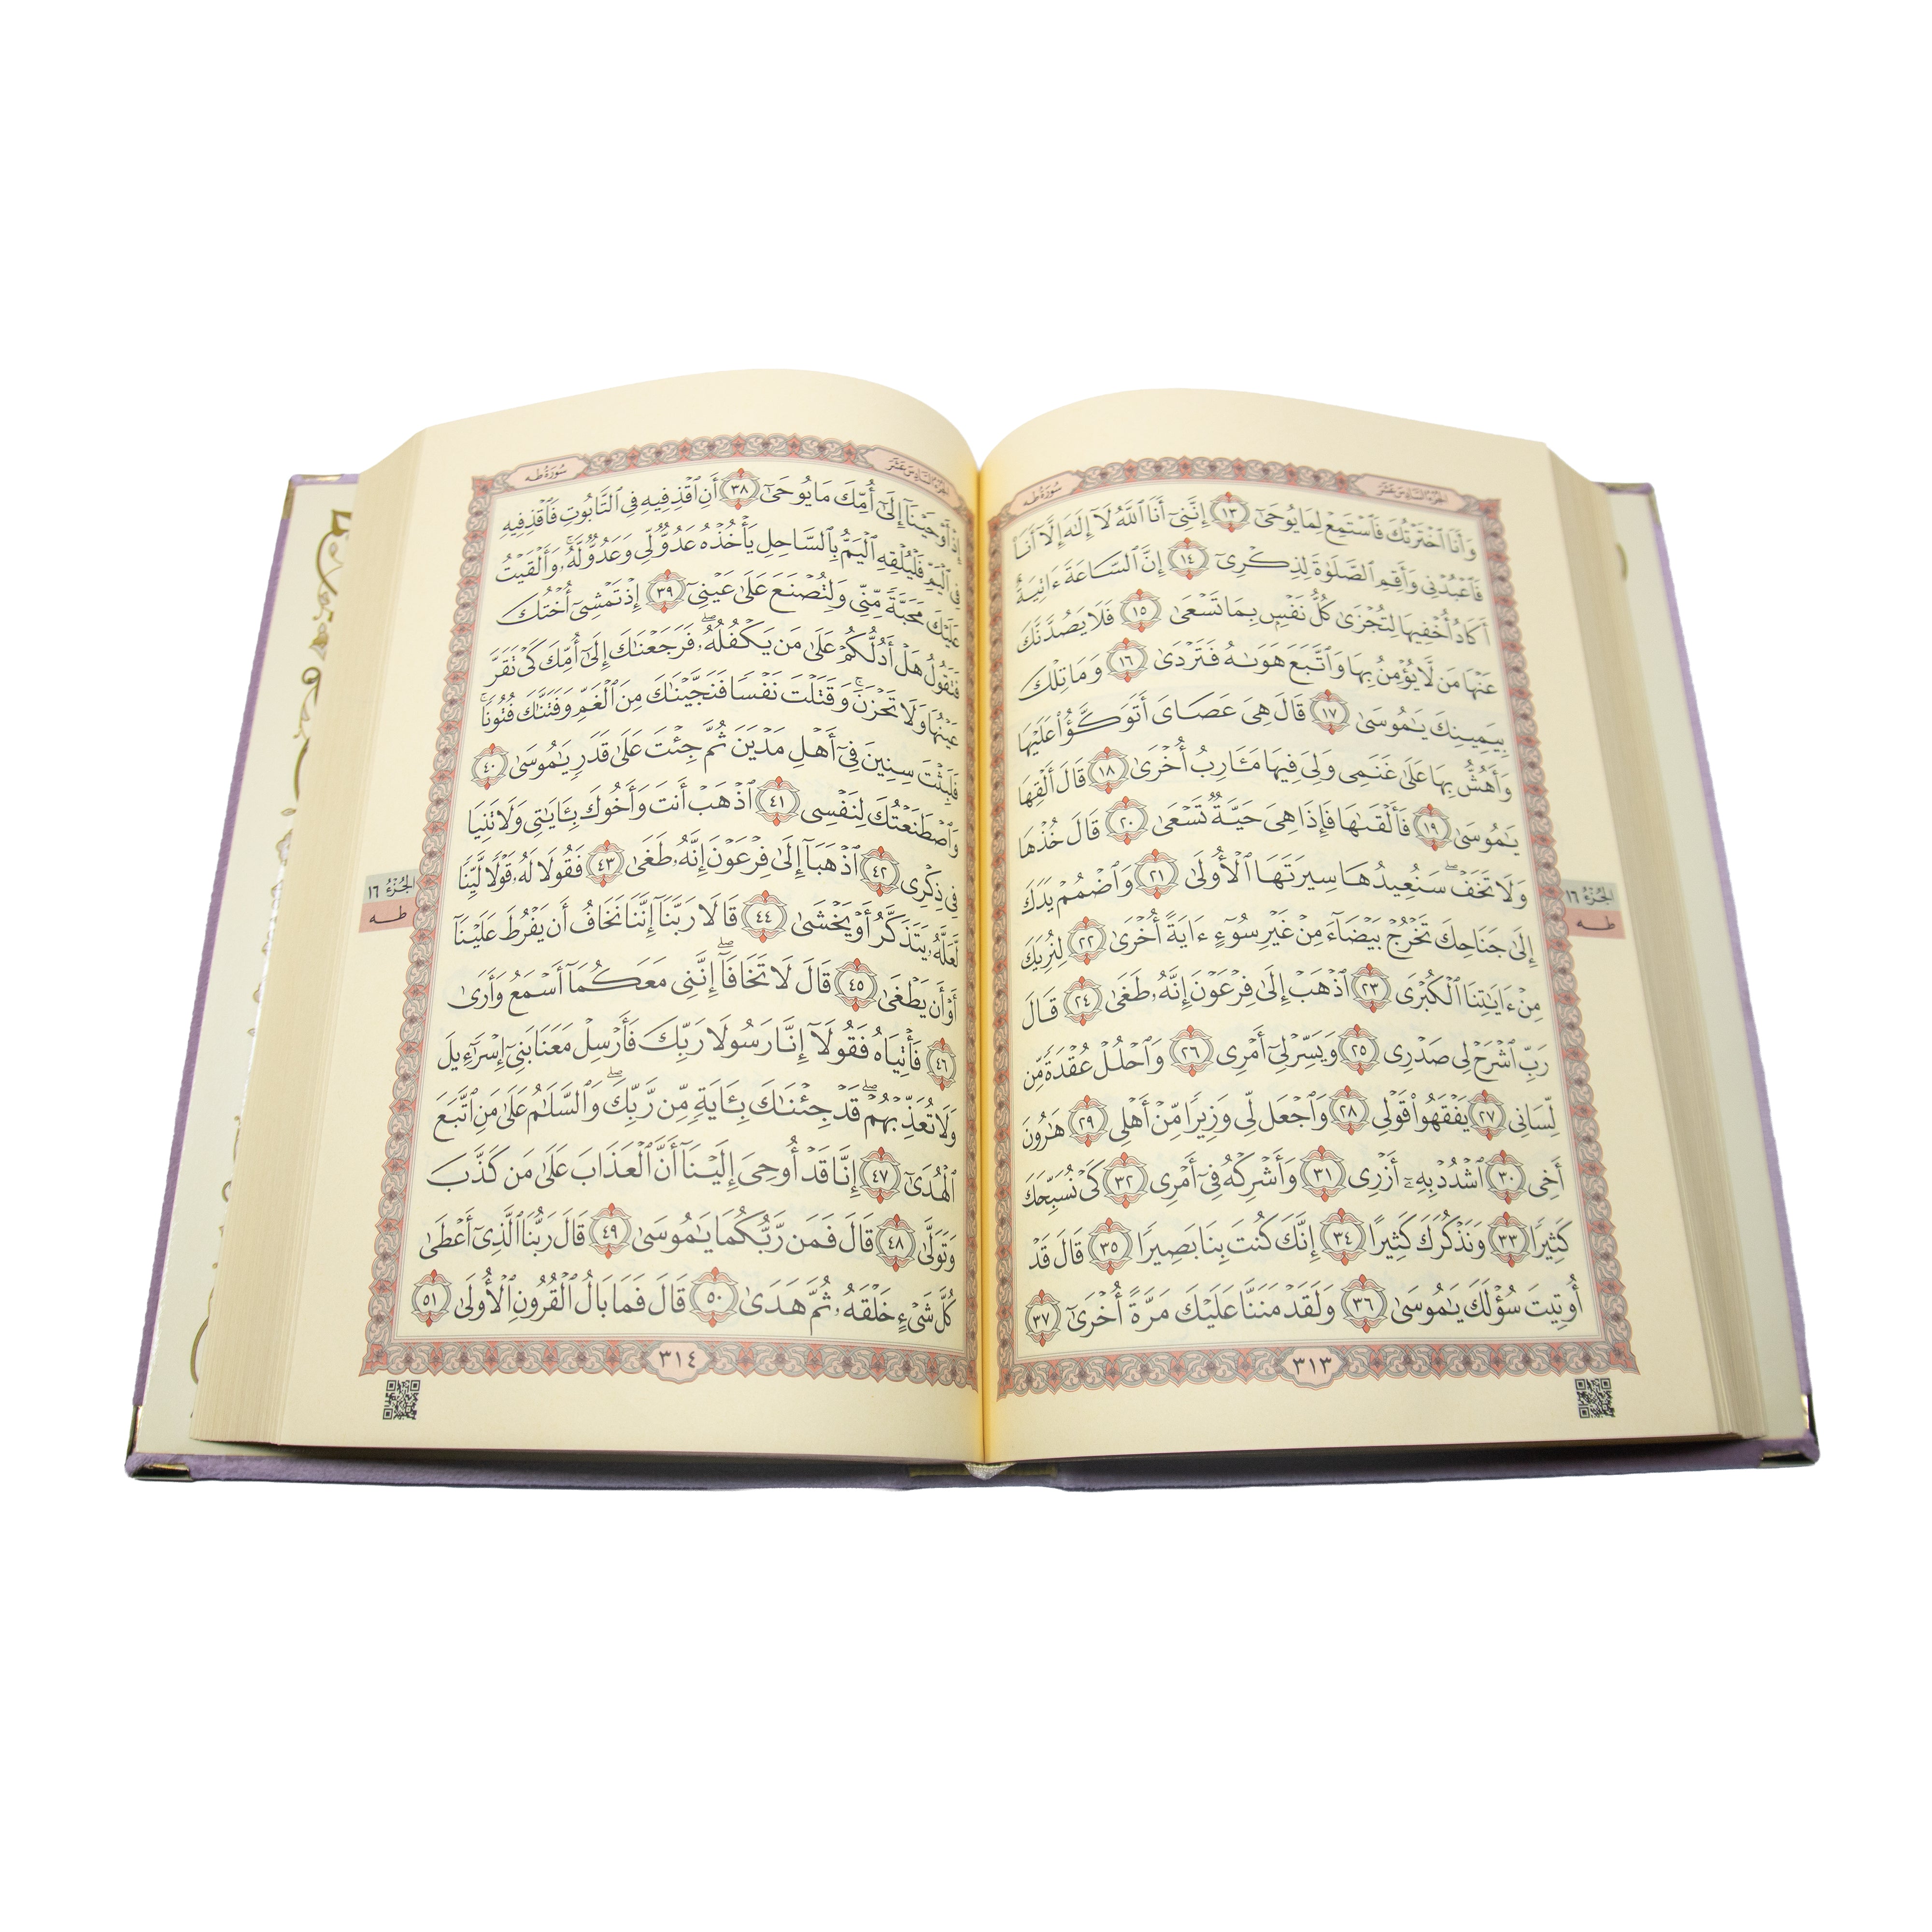 الجزء السادس عشر
سورة طه
وَأَنَا ٱخْتَرْتُكَ فَٱسْتَمِعْ لِمَا يُوحَىٰٓ ١٣ إِنَّنِىٓ أَنَا ٱللَّهُ لَآ إِلَٰهَ إِلَّآ أَنَا۠
فَٱعْبُدْنِى وَأَقِمِ ٱلصَّلَوٰةَ لِذِكْرِىٓ ١٤ إِنَّ ٱلسَّاعَةَ ءَاتِيَةٌ
أَكَادُ أُخْفِيهَا لِتُجْزَىٰ كُلُّ نَفْسٍۭ بِمَا تَسْعَىٰ ١٥ فَلَا يَصُدَّنَّكَ
عَنْهَا مَن لَّا يُؤْمِنُ بِهَا وَٱتَّبَعَ هَوَىٰهُ فَتَرْدَىٰ ١٦ وَمَا تِلْكَ
بِيَمِينِكَ يَٰمُوسَىٰ ١٧ قَالَ هِىَ عَصَاىَ أَتَوَكَّؤُا۟ عَلَيْهَا
وَأَهُشُّ بِهَا عَلَىٰ غَنَمِى وَلِىَ فِيهَا مَـَٔارِبُ أُخْرَىٰ ١٨ قَالَ أَلْقِهَا
يَٰمُوسَىٰ ١٩ فَأَلْقَىٰهَا فَإِذَا هِىَ حَيَّةٌ تَسْعَىٰ ٢٠ قَالَ خُذْهَا
وَلَا تَخَفْ ۖ سَنُعِيدُهَا سِيرَتَهَا ٱلْأُولَىٰ ٢١ وَٱضْمُمْ يَدَكَ
إِلَىٰ جَنَاحِكَ تَخْرُجْ بَيْضَآءَ مِنْ غَيْرِ سُوٓءٍ ءَايَةً أُخْرَىٰ ٢٢ لِنُرِيَكَ
مِنْ ءَايَٰتِنَا ٱلْكُبْرَى ٢٣ ٱذْهَبْ إِلَىٰ فِرْعَوْنَ إِنَّهُۥ طَغَىٰ ٢٤ قَالَ
رَبِّ ٱشْرَحْ لِى صَدْرِى ٢٥ وَيَسِّرْ لِىٓ أَمْرِى ٢٦ وَٱحْلُلْ عُقْدَةً مِّن
لِّسَانِى ٢٧ يَفْقَهُوا۟ قَوْلِى ٢٨ وَٱجْعَل لِّى وَزِيرًا مِّنْ أَهْلِى ٢٩ هَٰرُونَ
أَخِى ٣٠ ٱشْدُدْ بِهِۦٓ أَزْرِى ٣١ وَأَشْرِكْهُ فِىٓ أَمْرِى ٣٢ كَىْ نُسَبِّحَكَ
كَثِيرًا ٣٣ وَنَذْكُرَكَ كَثِيرًا ٣٤ إِنَّكَ كُنتَ بِنَا بَصِيرًا ٣٥ قَالَ قَدْ
أُوتِيتَ سُؤْلَكَ يَٰمُوسَىٰ ٣٦ وَلَقَدْ مَنَنَّا عَلَيْكَ مَرَّةً أُخْرَىٰٓ ٣٧
٣١٣
الجزء ١٦
طه
الجزء السادس عشر
سورة طه
إِذْ أَوْحَيْنَآ إِلَىٰٓ أُمِّكَ مَا يُوحَىٰٓ ٣٨ أَنِ ٱقْذِفِيهِ فِى ٱلتَّابُوتِ فَٱقْذِفِيهِ
فِى ٱلْيَمِّ فَلْيُلْقِهِ ٱلْيَمُّ بِٱلسَّاحِلِ يَأْخُذْهُ عَدُوٌّ لِّى وَعَدُوٌّ لَّهُۥ ۚ وَأَلْقَيْتُ
عَلَيْكَ مَحَبَّةً مِّنِّى وَلِتُصْنَعَ عَلَىٰ عَيْنِىٓ ٣٩ إِذْ تَمْشِىٓ أُخْتُكَ
فَتَقُولُ هَلْ أَدُلُّكُمْ عَلَىٰ مَن يَكْفُلُهُۥ ۖ فَرَجَعْنَٰكَ إِلَىٰٓ أُمِّكَ كَىْ تَقَرَّ
عَيْنُهَا وَلَا تَحْزَنَ ۚ وَقَتَلْتَ نَفْسًا فَنَجَّيْنَٰكَ مِنَ ٱلْغَمِّ وَفَتَنَّٰكَ فُتُونًا ۚ
فَلَبِثْتَ سِنِينَ فِىٓ أَهْلِ مَدْيَنَ ثُمَّ جِئْتَ عَلَىٰ قَدَرٍ يَٰمُوسَىٰ ٤٠
وَٱصْطَنَعْتُكَ لِنَفْسِى ٤١ ٱذْهَبْ أَنتَ وَأَخُوكَ بِـَٔايَٰتِى وَلَا تَنِيَا
فِى ذِكْرِى ٤٢ ٱذْهَبَآ إِلَىٰ فِرْعَوْنَ إِنَّهُۥ طَغَىٰ ٤٣ فَقُولَا لَهُۥ قَوْلًا لَّيِّنًا
لَّعَلَّهُۥ يَتَذَكَّرُ أَوْ يَخْشَىٰ ٤٤ قَالَا رَبَّنَآ إِنَّنَا نَخَافُ أَن يَفْرُطَ عَلَيْنَآ
أَوْ أَن يَطْغَىٰ ٤٥ قَالَ لَا تَخَافَآ ۖ إِنَّنِى مَعَكُمَآ أَسْمَعُ وَأَرَىٰ
٤٦ فَأْتِيَاهُ فَقُولَآ إِنَّا رَسُولَا رَبِّكَ فَأَرْسِلْ مَعَنَا بَنِىٓ إِسْرَٰٓءِيلَ
وَلَا تُعَذِّبْهُمْ ۖ قَدْ جِئْنَٰكَ بِـَٔايَةٍ مِّن رَّبِّكَ ۖ وَٱلسَّلَٰمُ عَلَىٰ مَنِ ٱتَّبَعَ
ٱلْهُدَىٰٓ ٤٧ إِنَّا قَدْ أُوحِىَ إِلَيْنَآ أَنَّ ٱلْعَذَابَ عَلَىٰ مَن كَذَّبَ
وَتَوَلَّىٰ ٤٨ قَالَ فَمَن رَّبُّكُمَا يَٰمُوسَىٰ ٤٩ قَالَ رَبُّنَا ٱلَّذِىٓ أَعْطَىٰ
كُلَّ شَىْءٍ خَلْقَهُۥ ثُمَّ هَدَىٰ ٥٠ قَالَ فَمَا بَالُ ٱلْقُرُونِ ٱلْأُولَىٰ ٥١
٣١٤
الجزء ١٦
طه